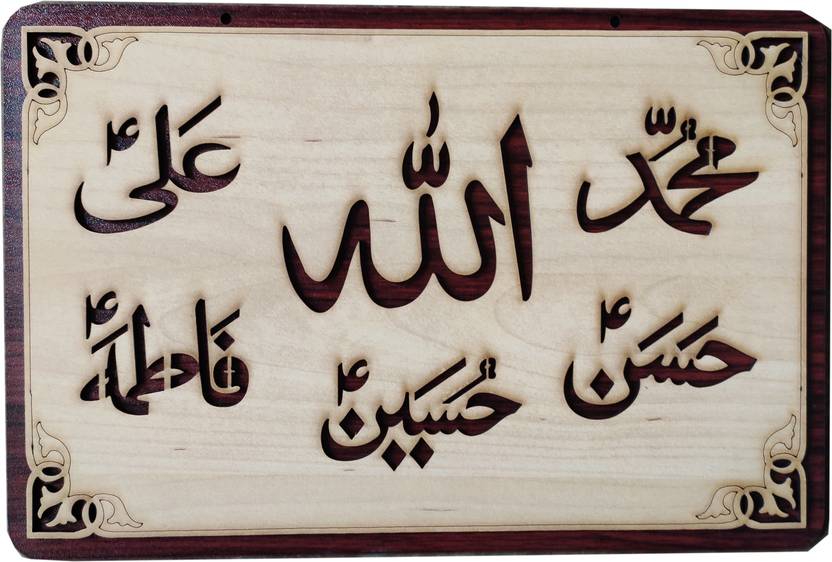 محمّد
الله
علیؑ
حسنؑ
حسینؑ
فاطمةؑ